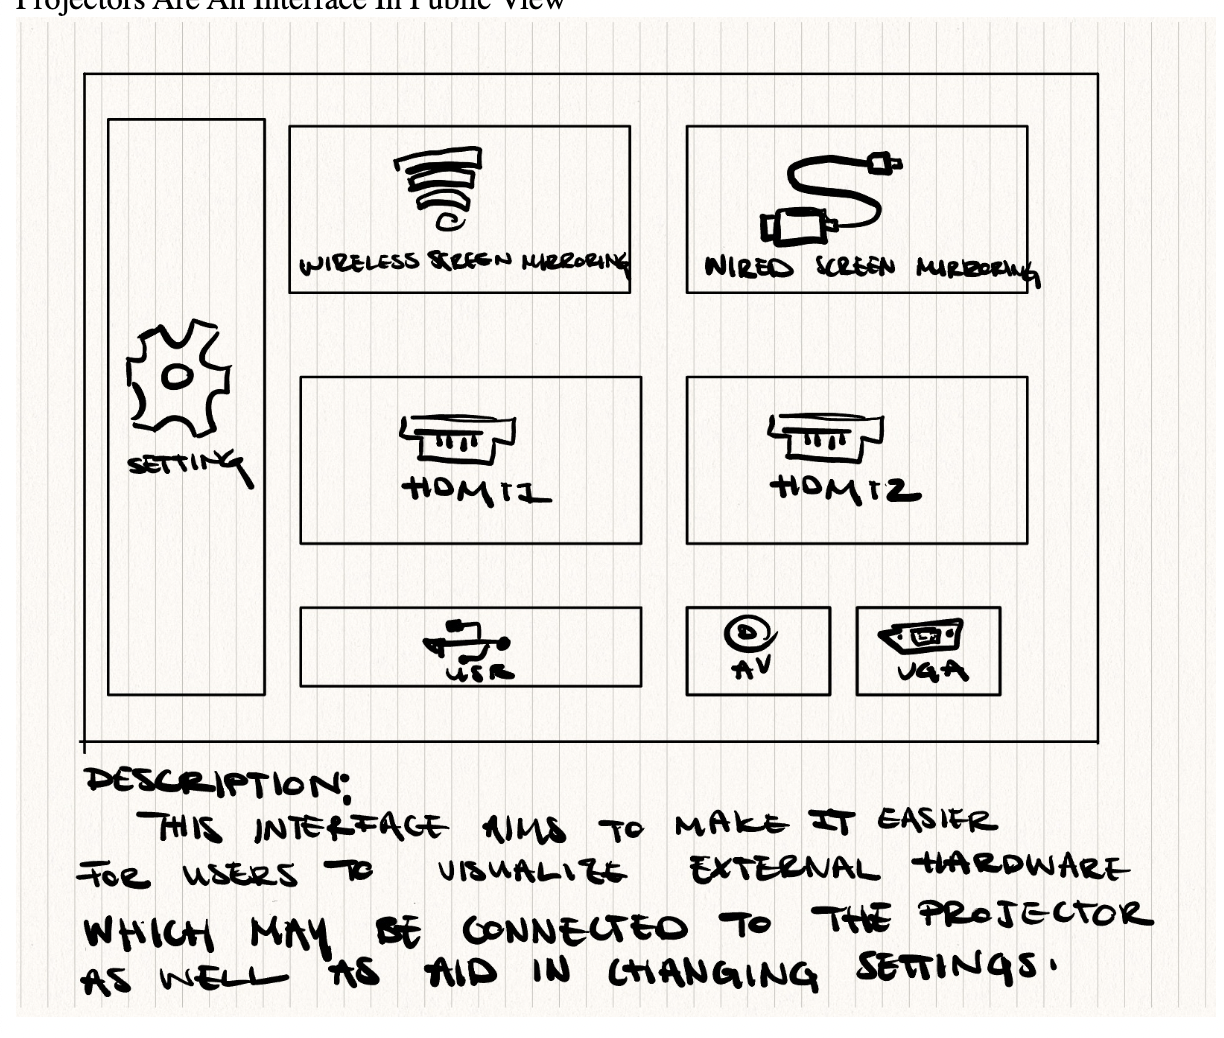 Projectors Are An Interface In Public View
WIRELESS SCREEN MIRRORING
WIRED SCREEN MIRRORING
SETTING
HDMI1
HDMI2
USB
AV
VGA
DESCRIPTION:
THIS INTERFACE AIMS TO MAKE IT EASIER
FOR USERS TO VISUALIZE EXTERNAL HARDWARE
WHICH MAY BE CONNECTED TO THE PROJECTOR
AS WELL AS AID IN CHANGING SETTINGS.